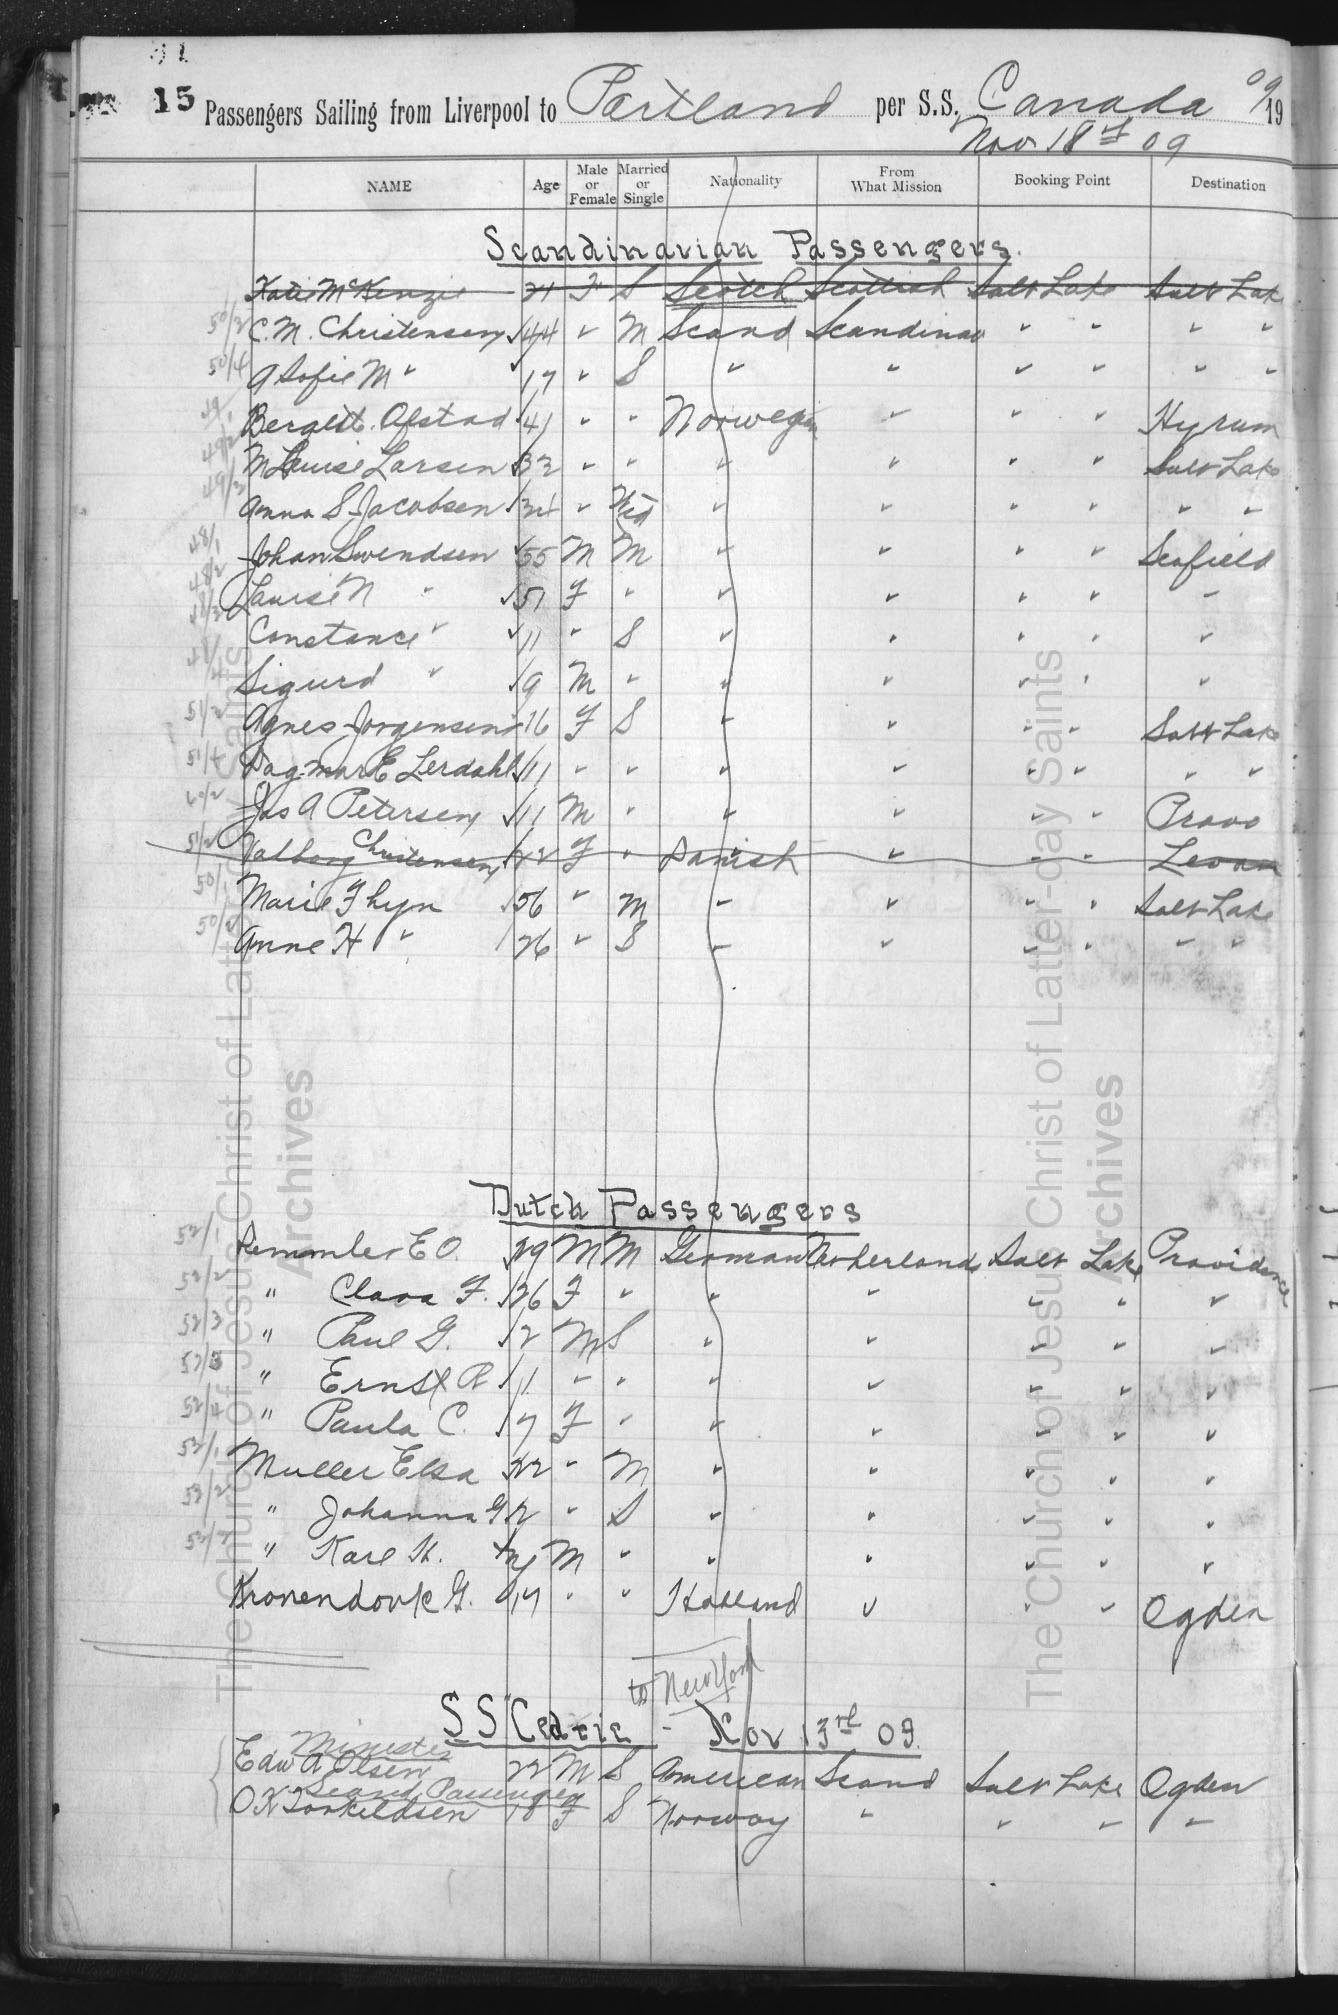 15 Passengers Sailing from Liverpool to Portland per S.S. Canada 09 19
Nov 18th 09
NAME Age Male or Female Married or Single Nationality From What Mission Booking Point Destination
Scandinavian Passengers
Katie McKenzie 21 F S Scotch Scottish Salt Lake Salt Lak
50/3 C. M. Christensen 44 " M Scand Scandinav " " " "
50/4 A Sofie M " 17 " S " " " " " "
Bergtt. Ofstad 41 " " Norwegin " " " Hyrum
49/2 M Louise Larsen 32 " " " " " " Salt Lake
49/3 Anna S. Jacobsen 34 " Wid " " " " " "
48/1 Johan Swendsen 55 M M " " " " Scofield
48/2 Laurse N " 51 F " " " " " "
48/3 Constance " 11 " S " " " " "
Sigurd " 9 M " " " " " "
51/2 Agnes Jorgensen 16 F S " " " " Salt Lake
51/4 Dagmar E Lerdahl 11 " " " " " " " "
Jas A Petersen 11 M " " " " " Provo
51/2 Valborg Christensen 22 F " Danish " " " Levan
50/1 Marie Thyn 56 " M " " " " Salt Lake
50/2 Anne H " 26 " S " " " " " "
Dutch Passengers
52/1 Remmler E O. 29 M M German Netherland Salt Lake Providence
52/2 " Clara F. 26 F " " " " " "
52/3 " Paul G. 2 M S " " " " "
52/3 " Ernst R 11 " " " " " " "
52/4 " Paula C. 7 F " " " " " "
53/1 Muller Elsa 22 " M " " " " "
53/2 " Johanna G 2 " S " " " " "
" Karl H. M " " " " " "
Kronendonk G. 17 " " Holland " " " Ogden
to New York
SS Cedric - Nov 13rd 09.
Minister
Edw A Olsen 22 M S American Scand Salt Lake Ogden
Scand. Passenger
O K Torkildsen 18 F S Norway " " " "
The Church of Jesus Christ of Latter-day Saints
Archives
The Church of Jesus Christ of Latter-day Saints
Archives